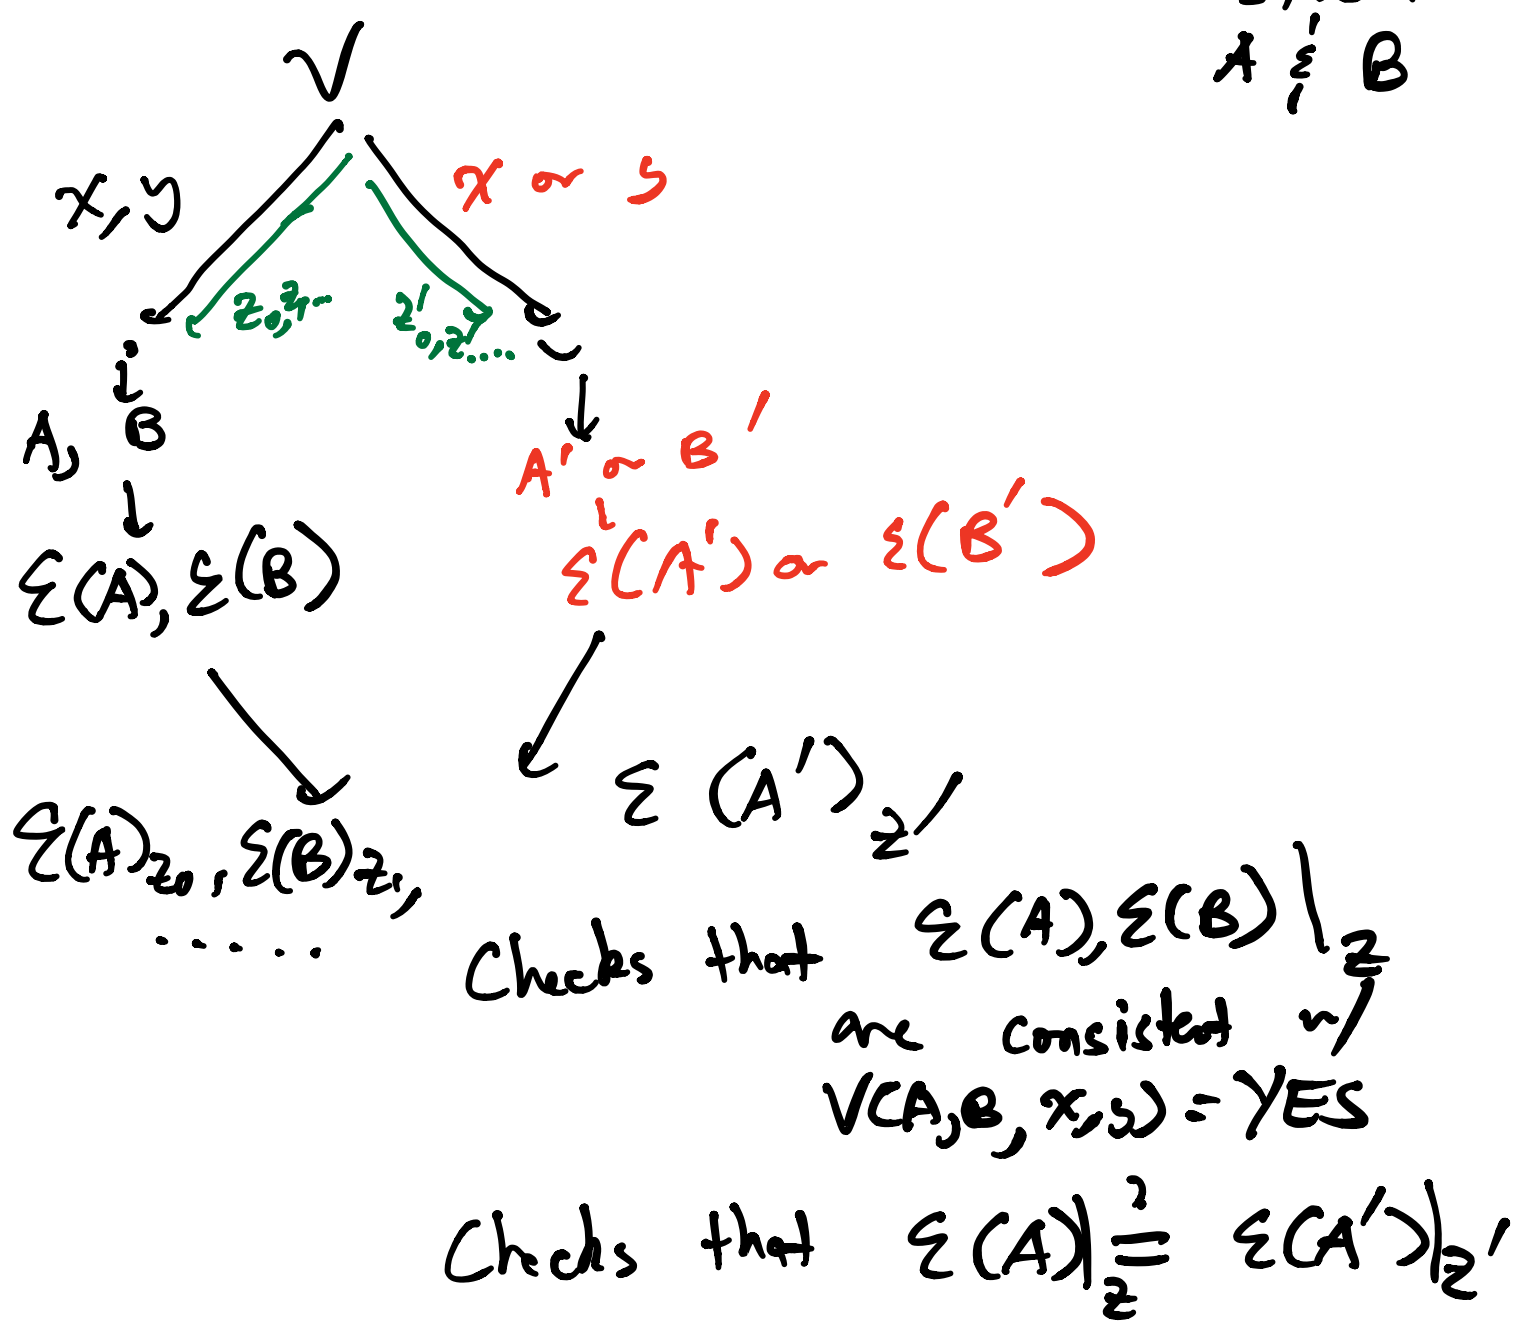 A & B
V
x, y
x or y
z₀, z₁...
z'₀, z'₁....
A, B
A' or B'
ℰ(A), ℰ(B)
ℰ(A') or ℰ(B')
ℰ(A')_z'
ℰ(A)_z₀, ℰ(B)_z₁,
.....
Checks that ℰ(A), ℰ(B)|_z
are consistent w/
V(A, B, x, y) = YES
Checks that ℰ(A)|_z ≟ ℰ(A')|_z'